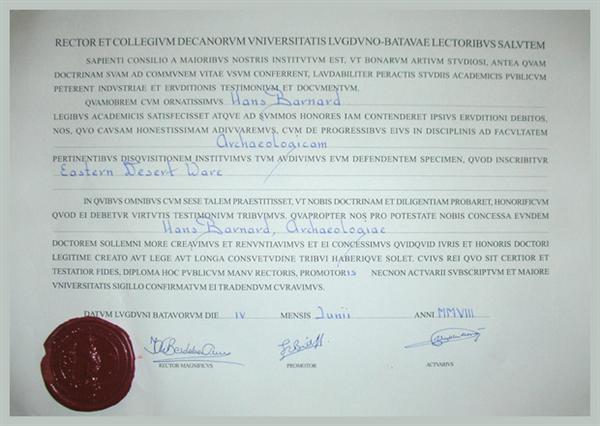 RECTOR ET COLLEGIVM DECANORVM VNIVERSITATIS LVGDVNO-BATAVAE LECTORIBVS SALVTEM
SAPIENTI CONSILIO A MAIORIBVS NOSTRIS INSTITVTVM EST, VT BONARVM ARTIVM STVDIOSI, ANTEA QVAM
DOCTRINAM SVAM AD COMMVNEM VITAE VSVM CONFERRENT, LAVDABILITER PERACTIS STVDIIS ACADEMICIS PVBLICVM
PETERENT INDVSTRIAE ET ERVDITIONIS TESTIMONIVM ET DOCVMENTVM.
QVAMOBREM CVM ORNATISSIMVS Hans Barnard
LEGIBVS ACADEMICIS SATISFECISSET ATQVE AD SVMMOS HONORES IAM CONTENDERET IPSIVS ERVDITIONI DEBITOS,
NOS, QVO CAVSAM HONESTISSIMAM ADIVVAREMVS, CVM DE PROGRESSIBVS EIVS IN DISCIPLINIS AD FACVLTATEM
Archaeologicam
PERTINENTIBVS DISQVISITIONEM INSTITVIMVS TVM AVDIVIMVS EVM DEFENDENTEM SPECIMEN, QVOD INSCRIBITVR
Eastern Desert Ware
IN QVIBVS OMNIBVS CVM SESE TALEM PRAESTITISSET, VT NOBIS DOCTRINAM ET DILIGENTIAM PROBARET, HONORIFICVM
QVOD EI DEBETVR VIRTVTIS TESTIMONIVM TRIBVIMVS. QVAPROPTER NOS PRO POTESTATE NOBIS CONCESSA EVNDEM
Hans Barnard, Archaeologiae
DOCTOREM SOLLEMNI MORE CREAVIMVS ET RENVNTIAVIMVS ET EI CONCESSIMVS QVIDQVID IVRIS ET HONORIS DOCTORI
LEGITIME CREATO AVT LEGE AVT LONGA CONSVETVDINE TRIBVI HABERIQVE SOLET. CVIVS REI QVO SIT CERTIOR ET
TESTATIOR FIDES, DIPLOMA HOC PVBLICVM MANV RECTORIS, PROMOTORIS NECNON ACTVARII SVBSCRIPTVM ET MAIORE
VNIVERSITATIS SIGILLO CONFIRMATVM EI TRADENDVM CVRAVIMVS.
DATVM LVGDVNI BATAVORVM DIE IV MENSIS Junii ANNI MMVIII
RECTOR MAGNIFICVS PROMOTOR ACTVARIVS